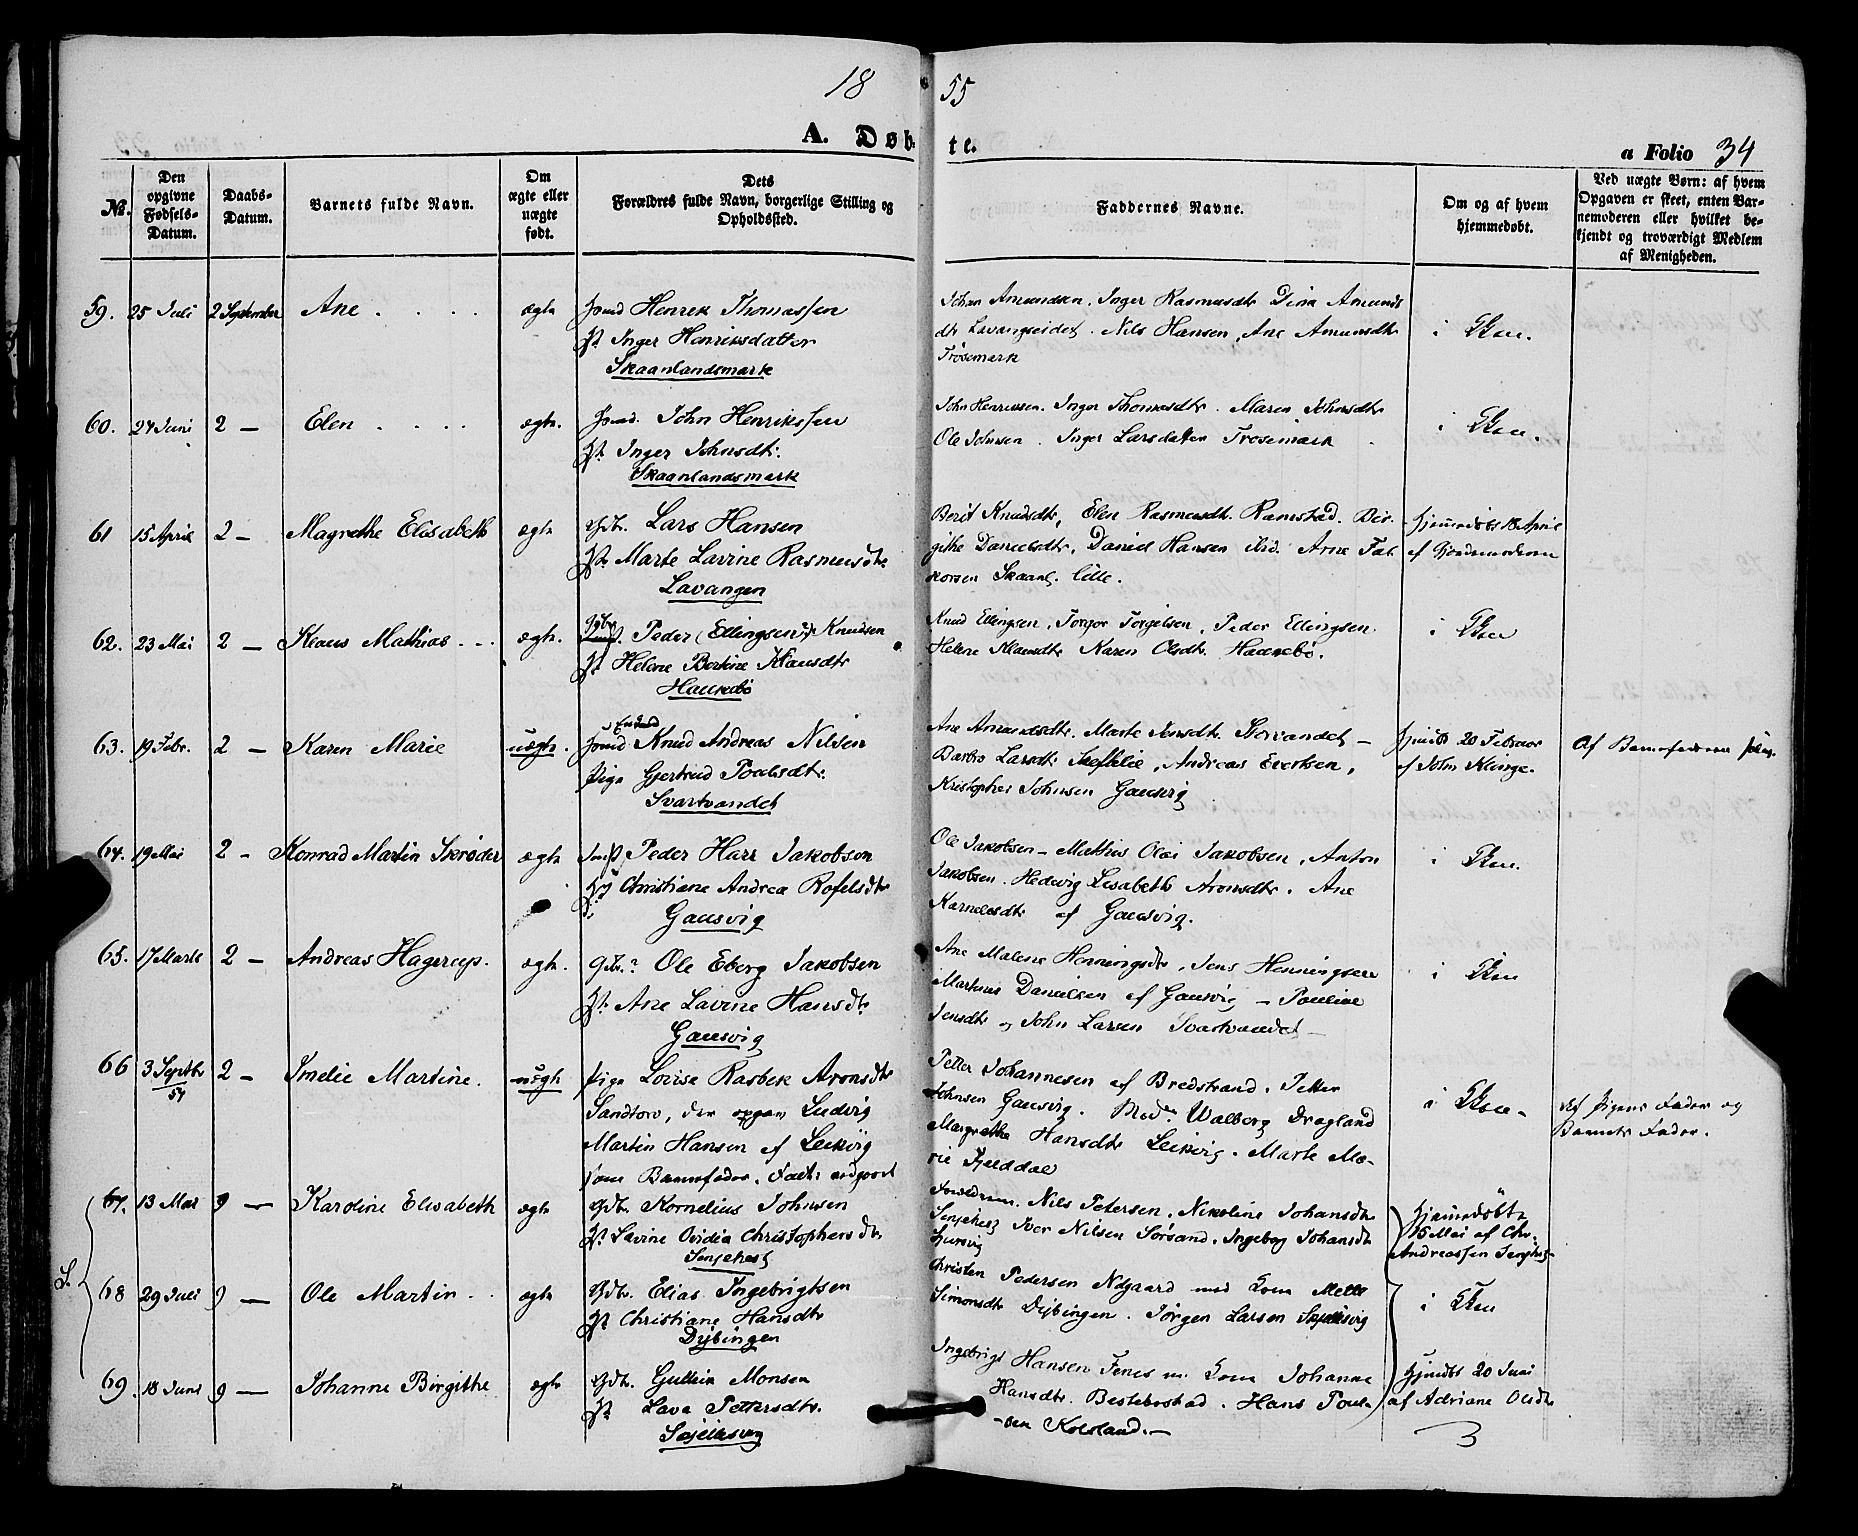 18 55
A. Døb- te.
a Folio 34
№.
Den opgivne Fødsels-Datum.
Daabs-Datum.
Barnets fulde Navn.
Om ægte eller uægte født.
Dets Forældres fulde Navn, borgerlige Stilling og Opholdssted.
Faddernes Navne.
Om og af hvem hjemmedøbt.
Ved uægte Børn: af hvem Opgaven er skeet, enten Barnemoderen eller hvilket bekjendt og troværdigt Medlem af Menigheden.
59. 25 Juli 2 September Ane . . . . ægte
Henrik Thomassen
Inger Henriksdatter
Skaanlandsmark
Johan Amundsen, Inger Rasmusdtr Dina Amunds
dtr Lavangseidet. Nils Hansen, Ane Amundsdtr
Trøsemark
i Kken.
60. 24 Juni 2 — Elen . . . . ægte.
John Henrikssen
Inger Johnsdtr.
Skaanlandsmark
John Henriksen. Inger Thomasdtr. Maren Johnsdtr
Ole Johnsen. Inger Larsdatter Trøsemark
i Kken.
61 15 April 2 — Magrethe Elisabeth ægte
Gbr. Lars Hansen
Marte Lavine Rasmusdtr
Lavangen
Berit Knudsdtr, Elen Rasmusdtr. Ramstad. Bir-
githe Danielsdtr, Daniel Hansen ibid. Arne Fal-
korsen Skaanl. lille.
hjemmedøbt 18 April
af Gjordemoderen
62. 23 Mai 2 — Klaus Mathias - - - ægte.
Peder (Ellingsen) Knudsen
Helene Bertine Klausdtr
Haukebø
Knud Ellingsen, Torger Torgelsen, Peder Ellingsen.
Helene Klausdtr Karen Olsdtr. Haukebø.
i Kken
63. 19 Febr. 2 — Karen Marie uægte.
Knud Andreas Nilsen
Pige Gjertrud Poulsdtr.
Svartvandet
Ane Amundsdtr. Marte Jensdtr. Svartvandet —
Barbro Larsdtr, Andreas Evertsen,
Kristopher Johnsen Gausvig
hjmdbt 20 Februar
af John Kunge.
Af Barnefaderen
64. 19 Mai 2 - Konrad Martin Skrøder ægte
Peder Harr Jakobsen
Christiane Andrea Rofelsdtr
Gausvig
Ole Jakobsen – Mathis Olai Jakobsen, Anton
Jakobsen. Hedevig Lisabeth Aronsdtr. Ane
Karnelisdtr af Gausvig.
i Kken.
65. 17 Marts 2 — Andreas Hagerup. ægte.
Gbr. Ole Eberg Jakobsen
Ane Lavine Hansdtr
Gausvig
Ane Malene Henningsdtr, Jens Henningsen
Martinus Danielsen af Gausvig — Pauline
Jensdtr og John Larsen Svartvandet —
i Kken
66 3 Septbr 54 2 — Imelie Martine. uægte
Pige Lovise Rasbek Aronsdtr
Sandtorv, der opgav Ludvig
Martin Hansen af Leikvig
som Barnefader. Fadr: vedgaaet
Petter Johannesen af Bredstrand. Petter
Johnsen Gausvig. Mad. Walborg Dragland
Margrethe Hansdtr Leikvig. Marte Ma-
rie Fjelddal
i Kken.
Af Pigens Fader og
Barnets Fader.
67. 13 Mai 9 — Karoline Elisabeth ægte
Gbr. Kornelius Johnsen
Lavine Ovidia Christophersdtr
Senjehest
Forældrene. Nils Petersen, Nikoline Johansdtr
Senjehest Iver Nilsen Sørsand. Ingeborg Johansdtr
Hjemmedøbt
15 Mai af Chr.
Andreassen Senjehest
S. 68 29 Juli 9 — Ole Martin . . ægte
Gbr. Elias Ingebrigtsen
Christiane Hansdtr
Dybingen
Christen Pedersen Nygaard med Kone Mette
Simonsdtr Dybingen. Jørgen Larsen Skjellesvig
i Kken
69. 18 Juni 9 — Johanne Birgithe ægte
Gbr. Gullik Monsen
Lava Pettersdtr.
Skjellesvig
Ingebrigt Hansen Fenes m. Kone Johanne
Hansdtr. Bestebostad. Hans Poul-
sen Kolsland. —
hjmdbt 20 Juni
af Adriane Olsdtr
3